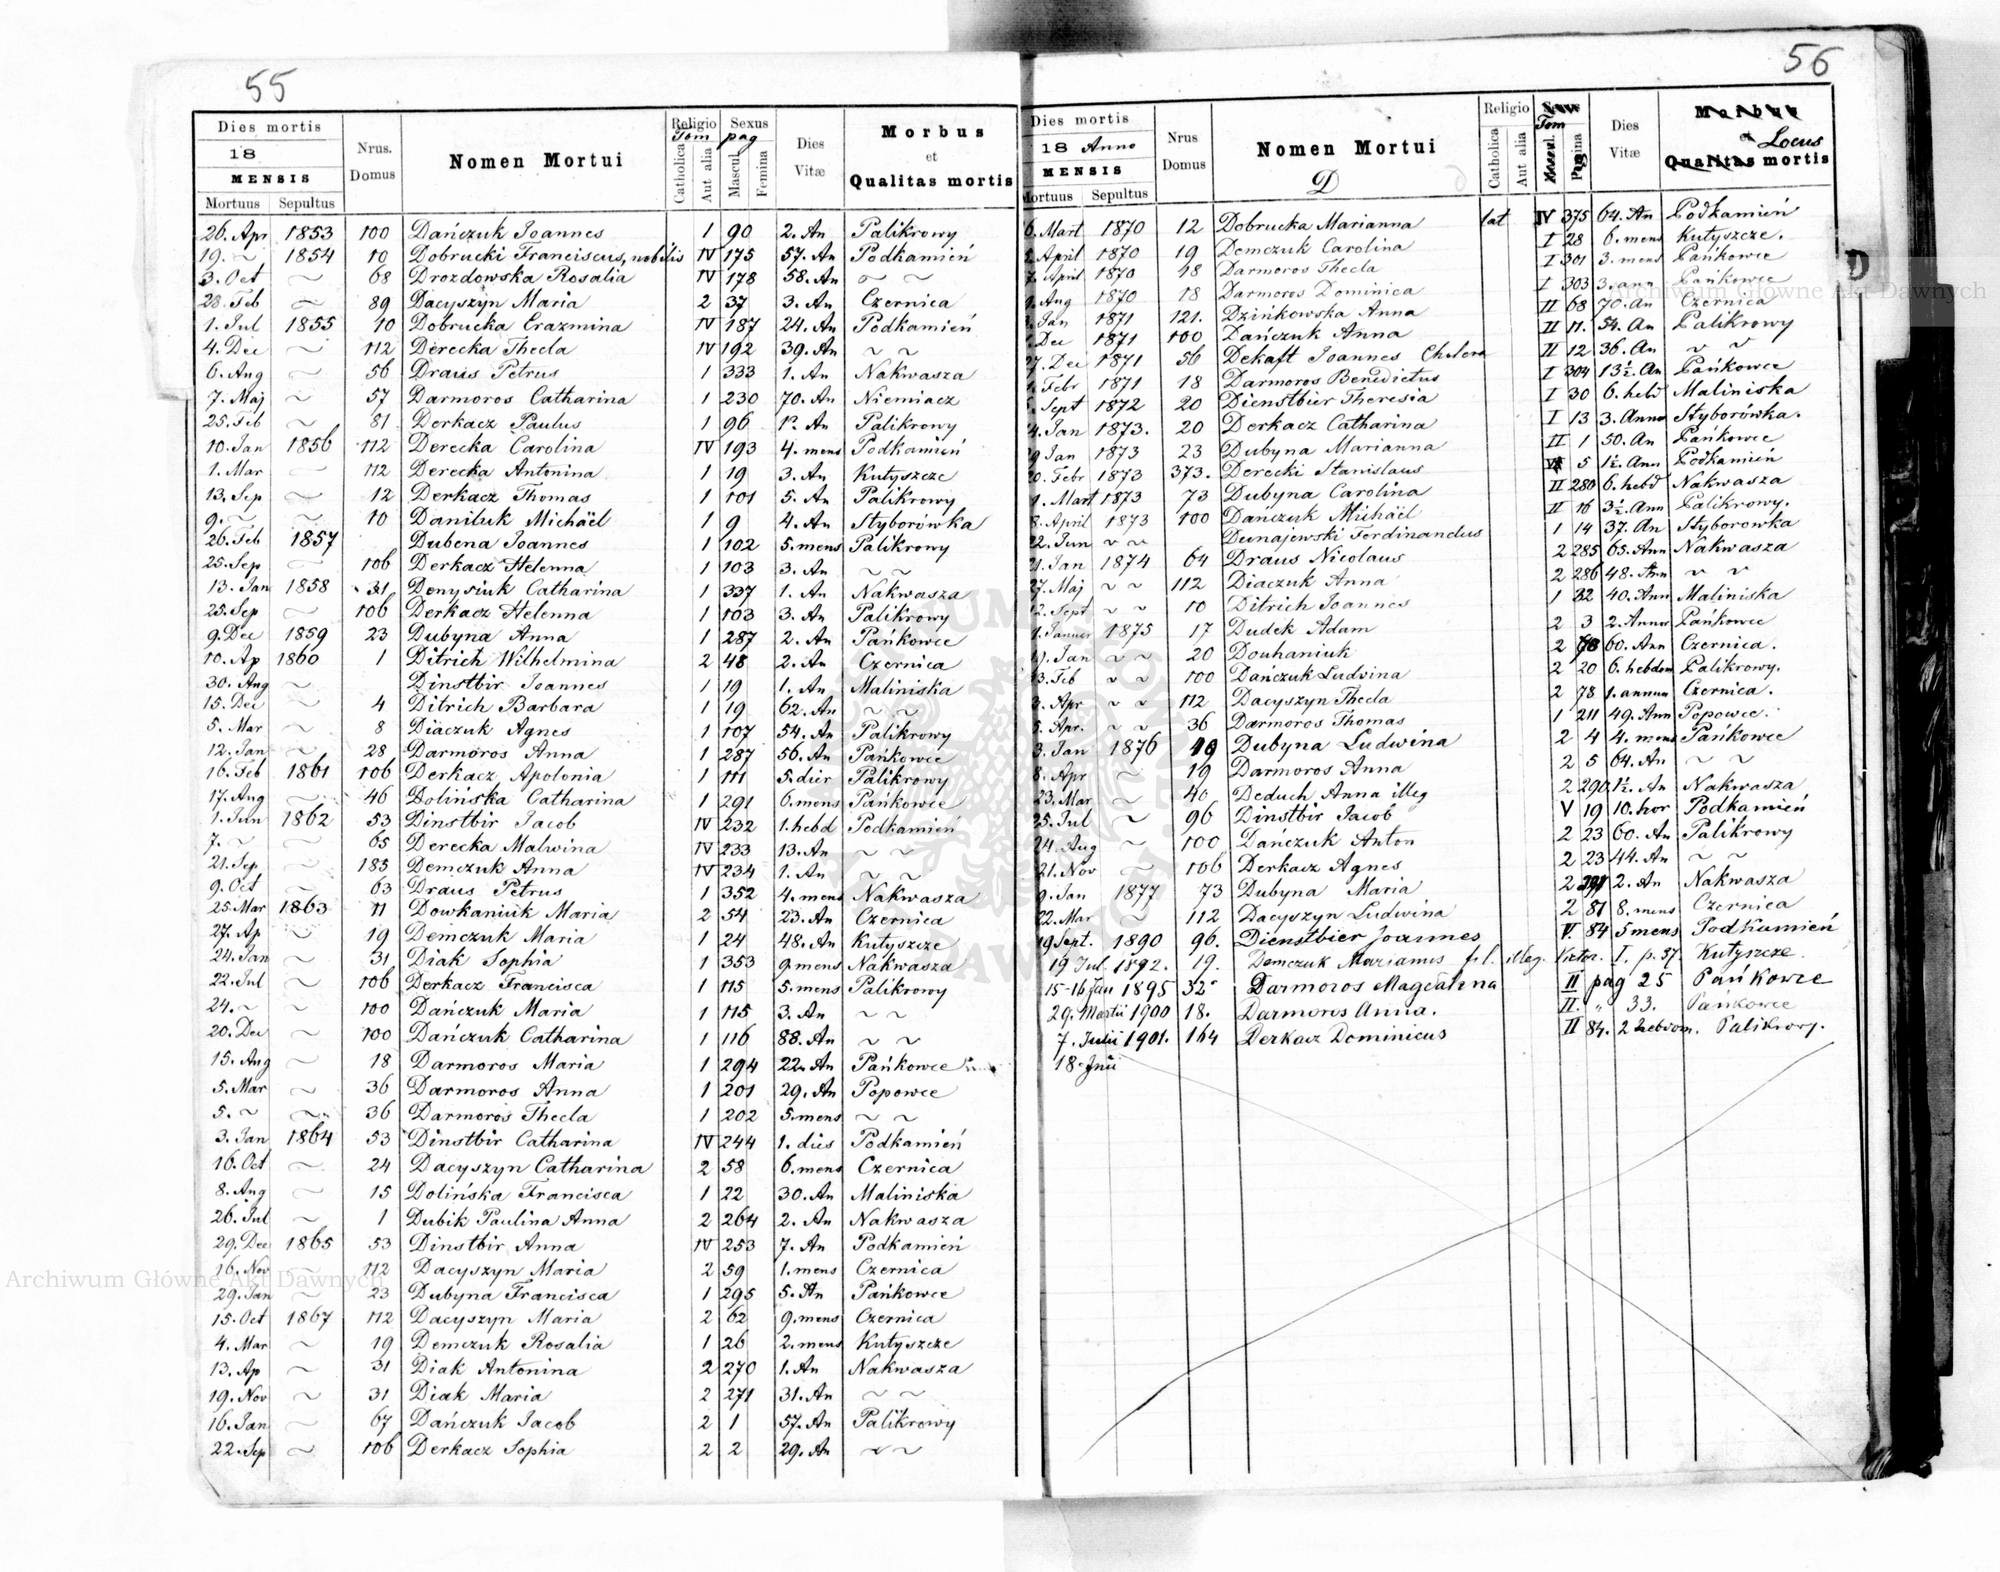 55
Dies mortis Nrus. Domus Nomen Mortui Religio Tom Sexus pag Dies Vitæ Morbus et Qualitas mortis
18
MENSIS
Mortuus Sepultus Catholica Aut alia Mascul. Femina
26. Apr 1853 100 Dańczuk Joannes 1 90 2. An Palikrowy
19. ~ 1854 10 Dobrucki Franciscus, nobilis IV 175 57. An Podkamień
3. Oct ~ 68 Drozdowska Rosalia IV 178 58. An ~ ~
28. Feb ~ 89 Dacyszyn Maria 2 37 3. An Czernica
1. Jul 1855 10 Dobrucka Erazmina IV 187 24. An Podkamień
4. Dec ~ 112 Derecka Thecla IV 192 39. An ~ ~
6. Aug ~ 56 Draus Petrus 1 333 1. An Nakwasza
7. Maj ~ 57 Darmoros Catharina 1 230 70. An Niemiacz
25. Feb ~ 81 Derkacz Paulus 1 96 An Palikrowy
10. Jan 1856 112 Derecka Carolina IV 193 4. mens Podkamień
1. Mar ~ 112 Derecka Antonina 1 19 3. An Kutyszcze
13. Sep ~ 12 Derkacz Thomas 1 101 5. An Palikrowy
9. ~ ~ 10 Daniluk Michäel 1 9 4. An Styborówka
26. Feb 1857 Dubena Joannes 1 102 5. mens Palikrowy
25. Sep ~ 106 Derkacz Helenna 1 103 3. An ~ ~
13. Jan 1858 31 Denysiuk Catharina 1 337 1. An Nakwasza
25. Sep ~ 106 Derkacz Helenna 1 103 3. An Palikrowy
9. Dec 1859 23 Dubyna Anna 1 287 2. An Pańkowce
10. Ap 1860 1 Ditrich Wilhelmina 2 48 2. An Czernica
30. Aug ~ Dinstbir Joannes 1 19 1. An Maliniska
15. Dec ~ 4 Ditrich Barbara 1 19 62. An ~ ~
5. Mar ~ 8 Diaczuk Agnes 1 107 54. An Palikrowy
12. Jan ~ 28 Darmoros Anna 1 287 56. An Pańkowce
16. Feb 1861 106 Derkacz Apolonia 1 111 5. dier Palikrowy
17. Aug ~ 46 Dolińska Catharina 1 291 6. mens Pańkowce
1. Jun 1862 53 Dinstbir Jacob IV 232 1. hebd Podkamień
7. ~ ~ 65 Derecka Malwina IV 233 13. An ~ ~
21. Sep ~ 183 Demczuk Anna IV 234 1. An ~ ~
9. Oct ~ 63 Draus Petrus 1 352 4. mens Nakwasza
25. Mar 1863 11 Dowkaniuk Maria 2 54 23. An Czernica
27. Ap ~ 19 Demczuk Maria 1 24 48. An Kutyszcze
24. Jan ~ 31 Diak Sophia 1 353 9. mens Nakwasza
22. Jul ~ 106 Derkacz Francisca 1 115 5. mens Palikrowy
24. ~ ~ 100 Dańczuk Maria 1 115 3. An ~ ~
20. Dec ~ 100 Dańczuk Catharina 1 116 88. An ~ ~
15. Aug ~ 18 Darmoros Maria 1 294 22. An Pańkowce
5. Mar ~ 36 Darmoros Anna 1 201 29. An Popowce
5. ~ ~ 36 Darmoros Thecla 1 202 5. mens ~ ~
3. Jan 1864 53 Dinstbir Catharina IV 244 1. dies Podkamień
16. Oct ~ 24 Dacyszyn Catharina 2 58 6. mens Czernica
8. Aug ~ 15 Dolińska Francisca 1 22 30. An Maliniska
26. Jul ~ 1 Dubik Paulina Anna 2 264 2. An Nakwasza
29. Dec 1865 53 Dinstbir Anna IV 253 7. An Podkamień
16. Nov ~ 112 Dacyszyn Maria 2 59 1. mens Czernica
29. Jan ~ 23 Dubyna Francisca 1 295 5. An Pańkowce
15. Oct 1867 112 Dacyszyn Maria 2 62 9. mens Czernica
4. Mar ~ 19 Demczuk Rosalia 1 26 2. mens Kutyszcze
13. Ap ~ 31 Diak Antonina 2 270 1. An Nakwasza
19. Nov ~ 31 Diak Maria 2 271 31. An ~ ~
16. Jan ~ 67 Dańczuk Jacob 2 1 57. An Palikrowy
22. Sep ~ 106 Derkacz Sophia 2 2 29. An ~ ~
56
Dies mortis Nrus Domus Nomen Mortui Religio Tom Dies Vitæ Morbus et Locus Qualitas mortis
18 Anno
MENSIS D
Mortuus Sepultus Catholica Aut alia Mascul. Pag
6. Mart 1870 12 Dobrucka Marianna lat IV 375 64. An Podkamień
April 1870 19 Demczuk Carolina I 28 6. mens Kutyszcze.
7. April 1870 18 Darmoros Thecla I 301 3. mens Pańkowce
9. Aug 1870 18 Darmoros Dominica I 303 3. ann Pańkowce
Jan 1871 121. Dzińkowska Anna II 68 70. An Czernica
Dec 1871 100 Dańczuk Anna II 11. 54. An Palikrowy
27. Dec 1871 56 Dekaft Joannes Cholera II 12 36. An ~ ~
Febr 1871 18 Darmoros Benedictus I 304 13½. An Pańkowce
Sept 1872 20 Dienstbier Theresia I 30 6. hebd Maliniska
4. Jan 1873. 20 Derkacz Catharina I 13 3. Anno Styborówka.
9 Jan 1873 23 Dubyna Marianna II 1 50. An Pańkowce
20. Febr 1873 373. Derecki Stanislaus 5 1½. Ann Podkamień
1. Mart 1873 73 Dubyna Carolina II 280 6. hebd Nakwasza
8. April 1873 100 Dańczuk Michäel II 16 3½. Ann Palikrowy.
22. Jun ~ ~ Dunajewski Ferdinandus 1 14 37. An Styborowka
21. Jan 1874 64 Draus Nicolaus 2 285 65. Ann Nakwasza
27. Maj ~ ~ 112 Diaczuk Anna 2 286 48. Ann ~ ~
12. Sept ~ ~ 10 Ditrich Joannes 1 32 40. Ann Maliniska
1. Januar 1875 17 Dudek Adam 2 3 2. Annor Pańkowce
Jan ~ ~ 20 Douhaniuk 2 78 60. Ann Czernica.
3. Feb ~ ~ 100 Dańczuk Ludvina 2 20 6. hebdom Palikrowy.
Apr ~ ~ 112 Dacyszyn Thecla 2 78 1. annum Czernica.
5. Apr. ~ ~ 36 Darmoros Thomas 1 211 49. Ann Popowce.
3. Jan 1876 19 Dubyna Ludwina 2 4 4. mens Pańkowce
8. Apr ~ 19 Darmoros Anna 2 5 64. An ~ ~
23. Mar ~ 40 Deduch Anna illeg 2 290 1½. An Nakwasza
25. Jul ~ 96 Dinstbir Jacob V 19 10. hor Podkamień
24. Aug ~ 100 Dańczuk Anton 2 23 60. An Palikrowy
21. Nov ~ 106 Derkacz Agnes 2 23 44. An ~ ~
9. Jan 1877 73 Dubyna Maria 2 291 2. An Nakwasza
22. Mar ~ 112 Dacyszyn Ludwina 2 81 8. mens Czernica
19 Sept. 1890 96. Dienstbier Joannes V. 84 5 mens Podkamień
19 Jul 1892. 19. Demczuk Marianus fil. illeg. I. p. 37. Kutyszcze.
15-16 jan 1895 32 Darmoros Magdalena II pag 25 Pańkowce
29. Martii 1900 18. Darmoros Anna. II. " 33. Pańkowce
7. Junii 1901. 164 Derkacz Dominicus II 84. 2 hebdom. Palikrowy.
18. Junii
D
Archiwum Główne Akt Dawnych
Archiwum Główne Akt Dawnych